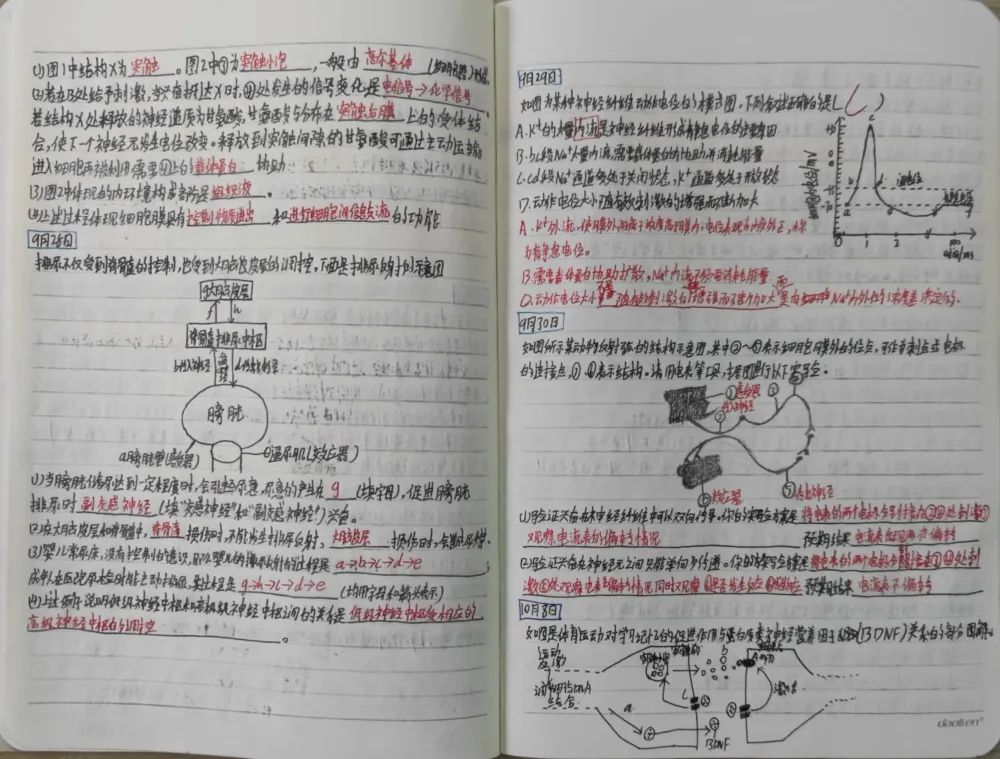 (1)图1中结构X为突触。图2中①为突触小泡,一般由高尔基体(细胞器)形成
(2)若在B处给予刺激,当兴奋到达X时,④处发生的信号变化是电信号→化学信号
若结构X处释放的神经递质为甘氨酸,甘氨酸与分布在突触后膜上的受体结
合,使下一个神经元发生电位改变。释放到突触间隙的甘氨酸可通过主动运输
进入细胞再被利用需要④上的载体蛋白协助
(3)图2中体现的内环境构成部分是组织液。
(4)上述过程体现细胞膜具有控制物质进出和进行细胞间信息交流的功能
9月28日
排尿不仅受到脊髓的控制,也受到大脑皮层的调控,下面是排尿反射的示意图
g大脑皮层
f h
c脊髓排尿中枢
b传入神经
d传出神经
膀胱
a膀胱壁(感受器)
e逼尿肌(效应器)
(1)当膀胱储尿达到一定程度时,会引起尿意,尿意的产生在g(填字母),促进膀胱
排尿时副交感神经(填“交感神经”和“副交感神经”)兴奋。
(2)在大脑皮层和脊髓中,脊髓损伤时,不能发生排尿反射,大脑皮层损伤时,会
(3)婴儿常尿床,没有控制的意识,那么婴儿的排尿反射的过程是a→b→c→d→e
成年人在医院尿检时能主动排尿,其过程是g→h→c→d→e(均用字母和箭头表示)
(4)上述例子说明低级神经中枢和高级神经中枢之间的关系是低级神经中枢受相应的
高级神经中枢的调控。
9月29日
如图为某种动物神经纤维动作电位的模式图,下列叙述正确的是( C )
A.K⁺的大量内流是神经纤维形成静息电位的主要原因
B.bc段Na⁺大量内流,需要载体蛋白的协助,并消耗能量
C.cd段Na⁺通道多处于关闭状态,K⁺通道多处于开放状态
D.动作电位大小随有效刺激的增强而不断加大
A.K⁺外流,使膜外阳离子浓度高于膜内,电位表现为内负外正,称
为静息电位。
B.需要载体蛋白协助扩散,Na⁺内流不需要消耗能量
D.动作电位大小不会随有效刺激的增强而不断加大,而是由Na⁺内外的浓度差决定的。
9月30日
如图所示某动物反射弧的结构示意图,其中②~④表示细胞膜外的位点,可作为刺激位点或电极
的连接点,①、⑥表示结构。请用电表等工具,据图进行以下实验。
①感受器
传入神经
②
③
④
⑤传出神经
⑥效应器
(1)验证兴奋在神经纤维中可以双向传导。你的实验方案是将电表的两个电极分别接在
观察电流表的偏转情况 预期结果电流表出现两次偏转
(2)验证兴奋在神经元之间只能单向传递。你的实验方案是
预期结果电流表不偏转
10月8日
如图是体育运动对学习记忆的促进作用与蛋白质类神经营养因子(BDNF)关系的部分图解
运动
应激
结合
a
b
c
A
BDNF
激活
daolen®